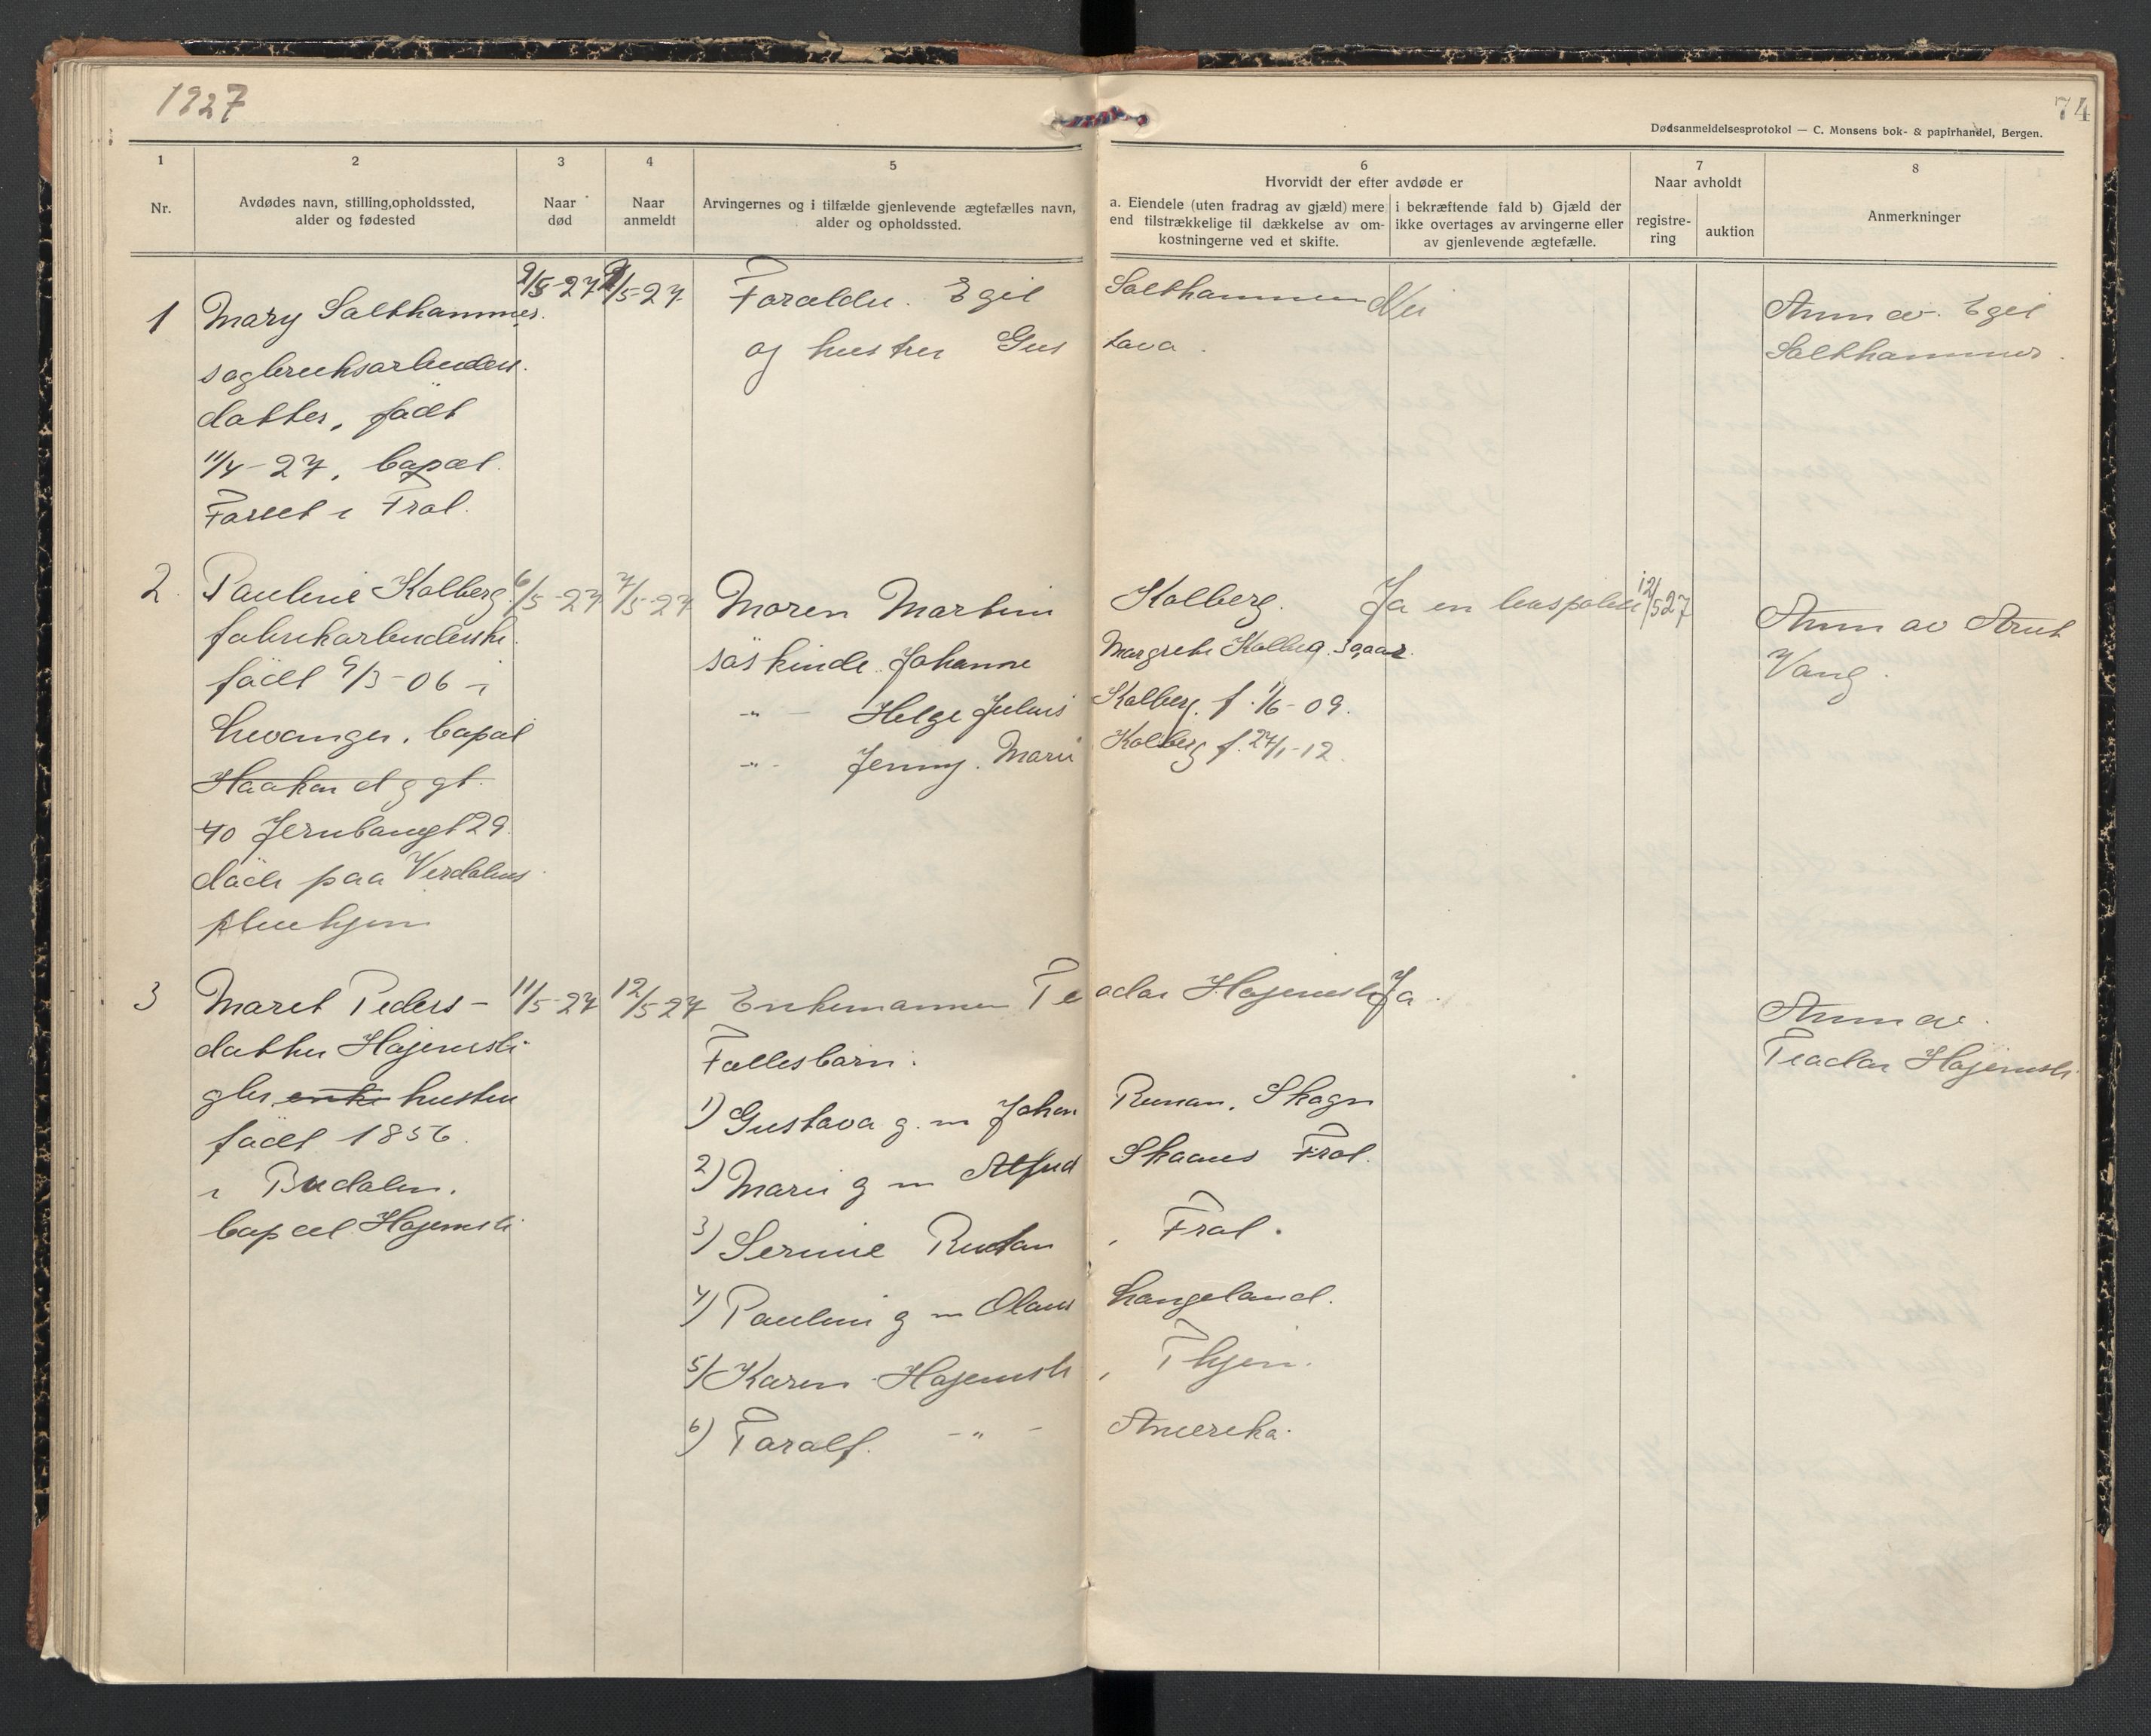 1927
74
Dødsanmeldelsesprotokol — C. Monsens bok- & papirhandel, Bergen.
1 2 3 4 5 6 7 8
Nr.
Avdødes navn, stilling, opholdssted,
alder og fødested
Naar
død
Naar
anmeldt
Arvingernes og i tilfælde gjenlevende ægtefælles navn,
alder og opholdssted.
Hvorvidt der efter avdøde er
a. Eiendele (uten fradrag av gjæld) mere
end tilstrækkelige til dækkelse av om-
kostningerne ved et skifte.
i bekræftende fald b) Gjæld der
ikke overtages av arvingerne eller
av gjenlevende ægtefælle.
Naar avholdt
registre-
ring
auktion
Anmerkninger
1 Mary Salthammer. 9/5-27 9/5-27 Foraldre. Egil Salthammer Nei Anm av. Egil
sagbruksarbeiders og hustru Gus tava. Salthammer.
datter, født
11/4-27, bopæl
i Frol.
2. Pauline Kolberg. 6/5-27 7/5-27 Moren Martine Kolberg. Ja en livspolise 12/5 27 Anm av Arnt
fabrikarbeiderske søskende Johanne Margrete Kolberg Vang.
født 9/3-06 i -"- Helge Julius Kolberg. f. 1/6-09.
Levanger. bopæl -"- Jenny. Marie Kolberg f. 27/1-12.
Haakon d 7 gt.
40 Jernbanegt 29.
døde paa Verdalens
pleiehjem
3 Maret Peders- 11/5-27 12/5-27 Enkemannen Te odor Hojemsli Ja. Anm av.
datter Hojemsli Fællesbarn: Teodor Hojemsli
gbr enke hustru 1) Gustava g. m Johan Runan, Skogn
født 1856. 2) Marie g m Alfred Skaanes Frol.
i Budalen. 3) Serine Rustan, Frol.
bopæl Hojemsli 4) Pauline g m Olaus Langeland.
5) Karen Hojemsli, Thjem.
6) Toralf. -"- Amereka.